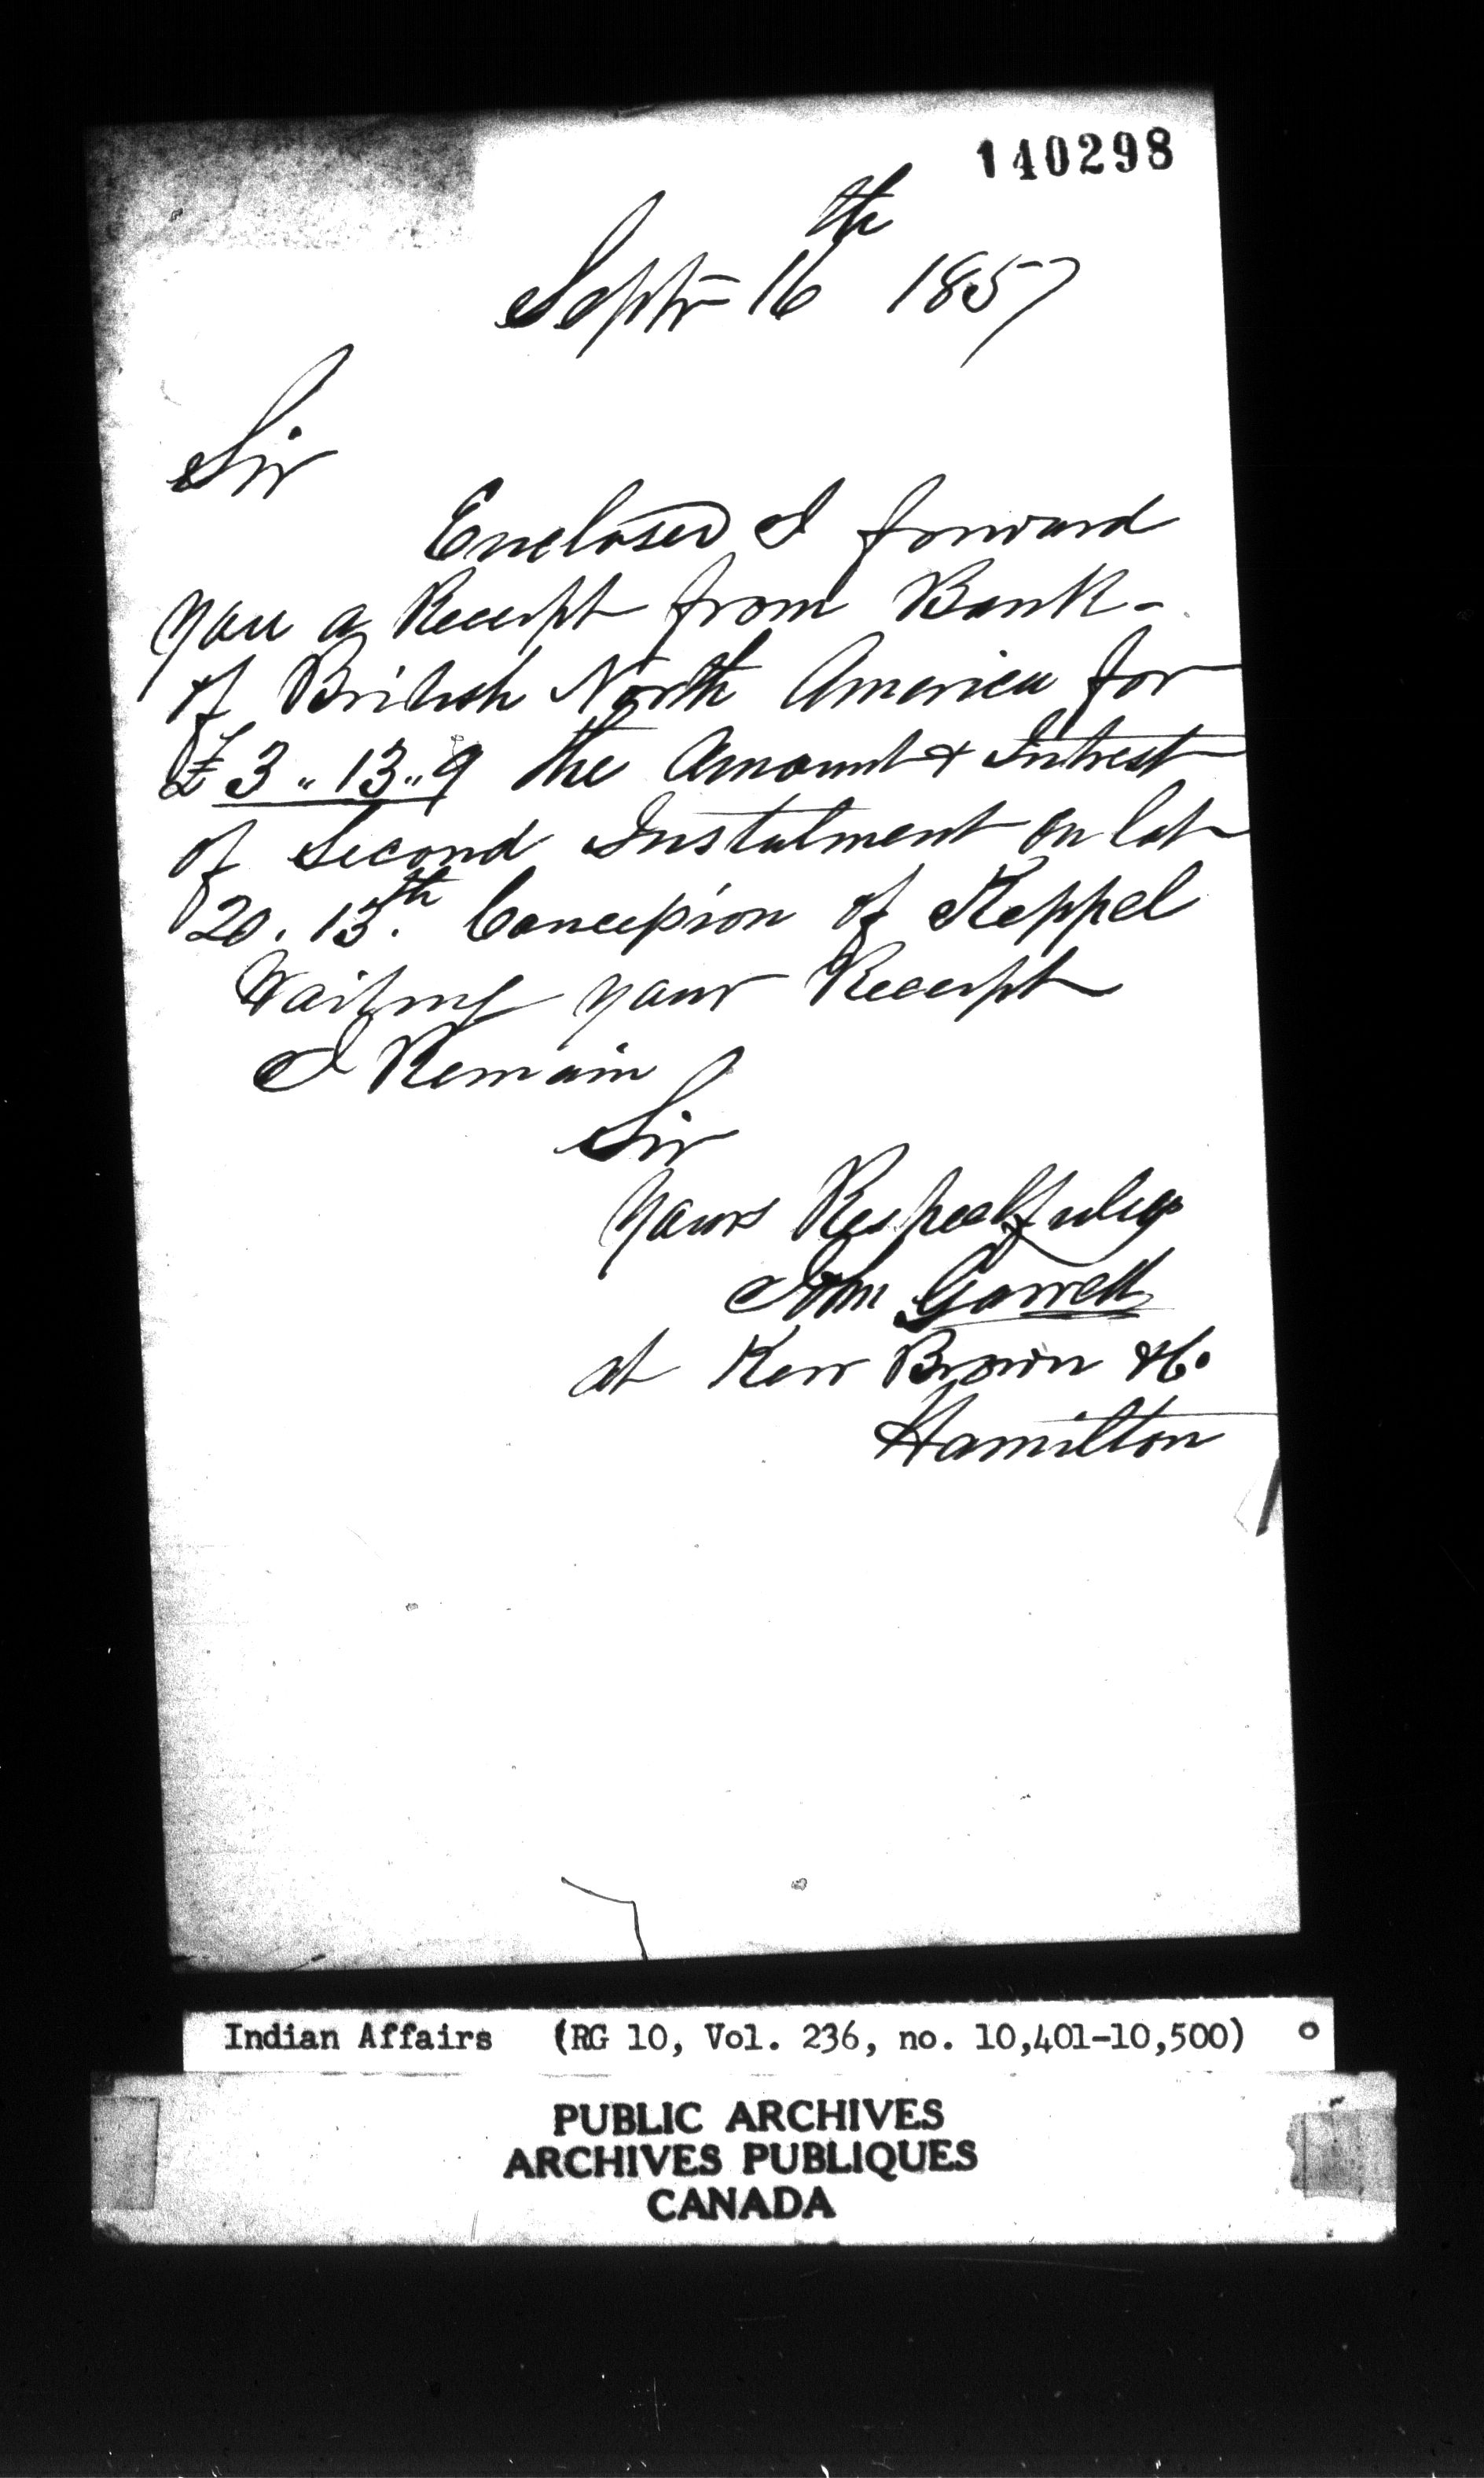 140298
Septr 16th 1857
Sir
Enclosed I forward
you a Receipt from Bank
of British North America for
£3 .. 13 .. 9 the Amount & Intrest
of Second Instalment on lot
20. 13th Concession of Keppel
Waiting your Receipt
I Remain
Sir
Yours Respectfuly
John Garrett
at Kerr Brown & Co
Hamilton
Indian Affairs (RG 10, Vol. 236, no. 10,401-10,500)
PUBLIC ARCHIVES
ARCHIVES PUBLIQUES
CANADA